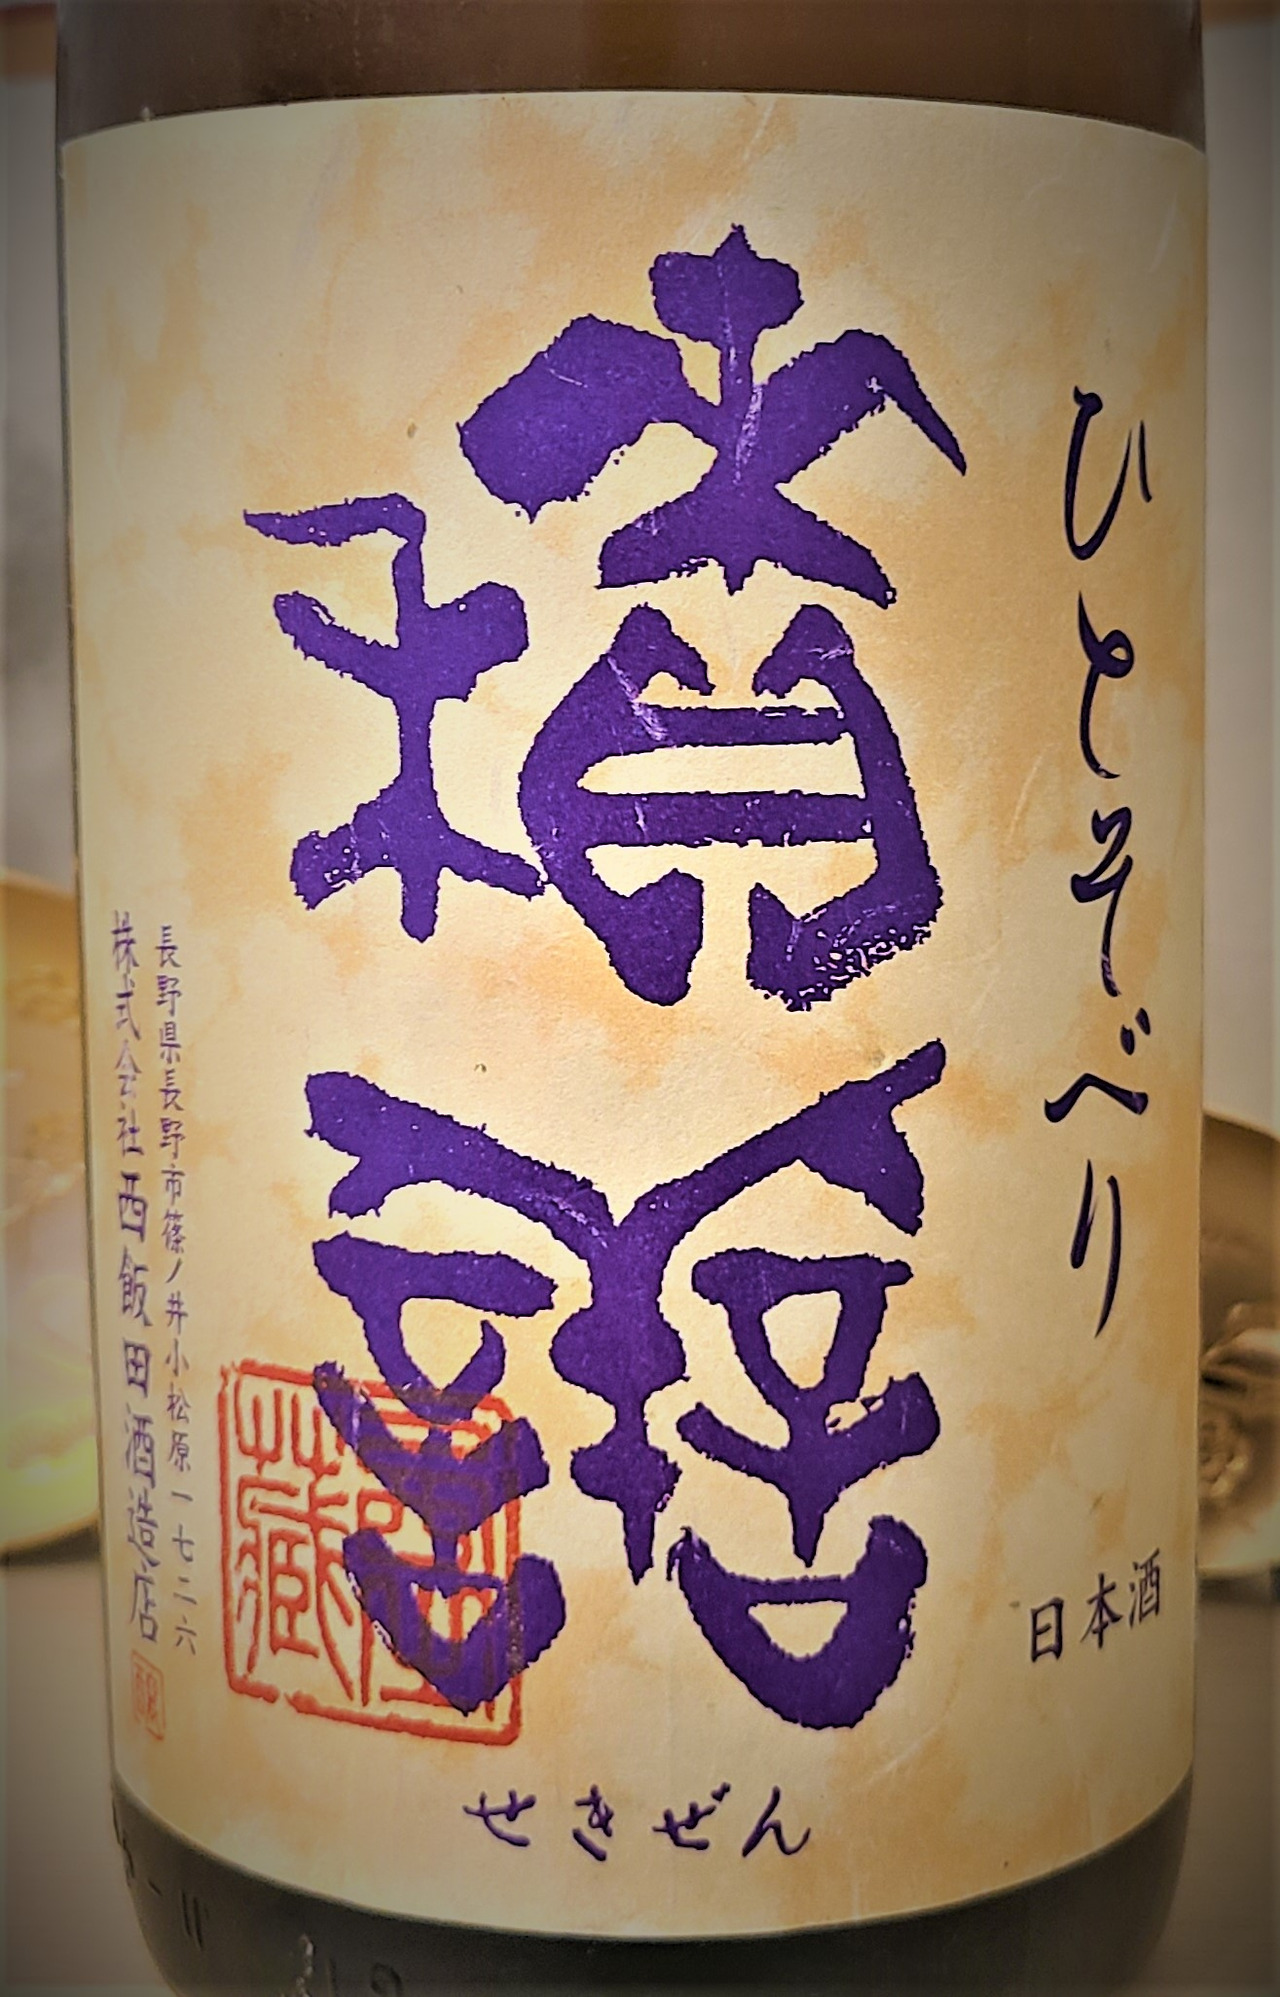 ひとそべり
日本酒
積善
せきぜん
長野県長野市篠ノ井小松原一七二六
株式会社西飯田酒造店